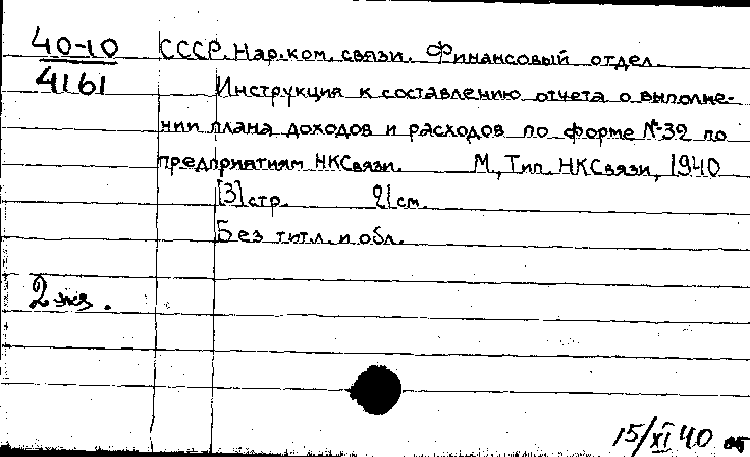 40-10
4161
СССР. Нар. ком. связи. Финансовый отдел.
Инструкция к составлению отчета о выполне-
нии плана доходов и расходов по форме №-32 по
предприятиям НКСвязи. М., Тип. НКСвязи, 1940
[3] стр. 21 см.
Без титл. л. и обл.
2 экз.
15/XI 40